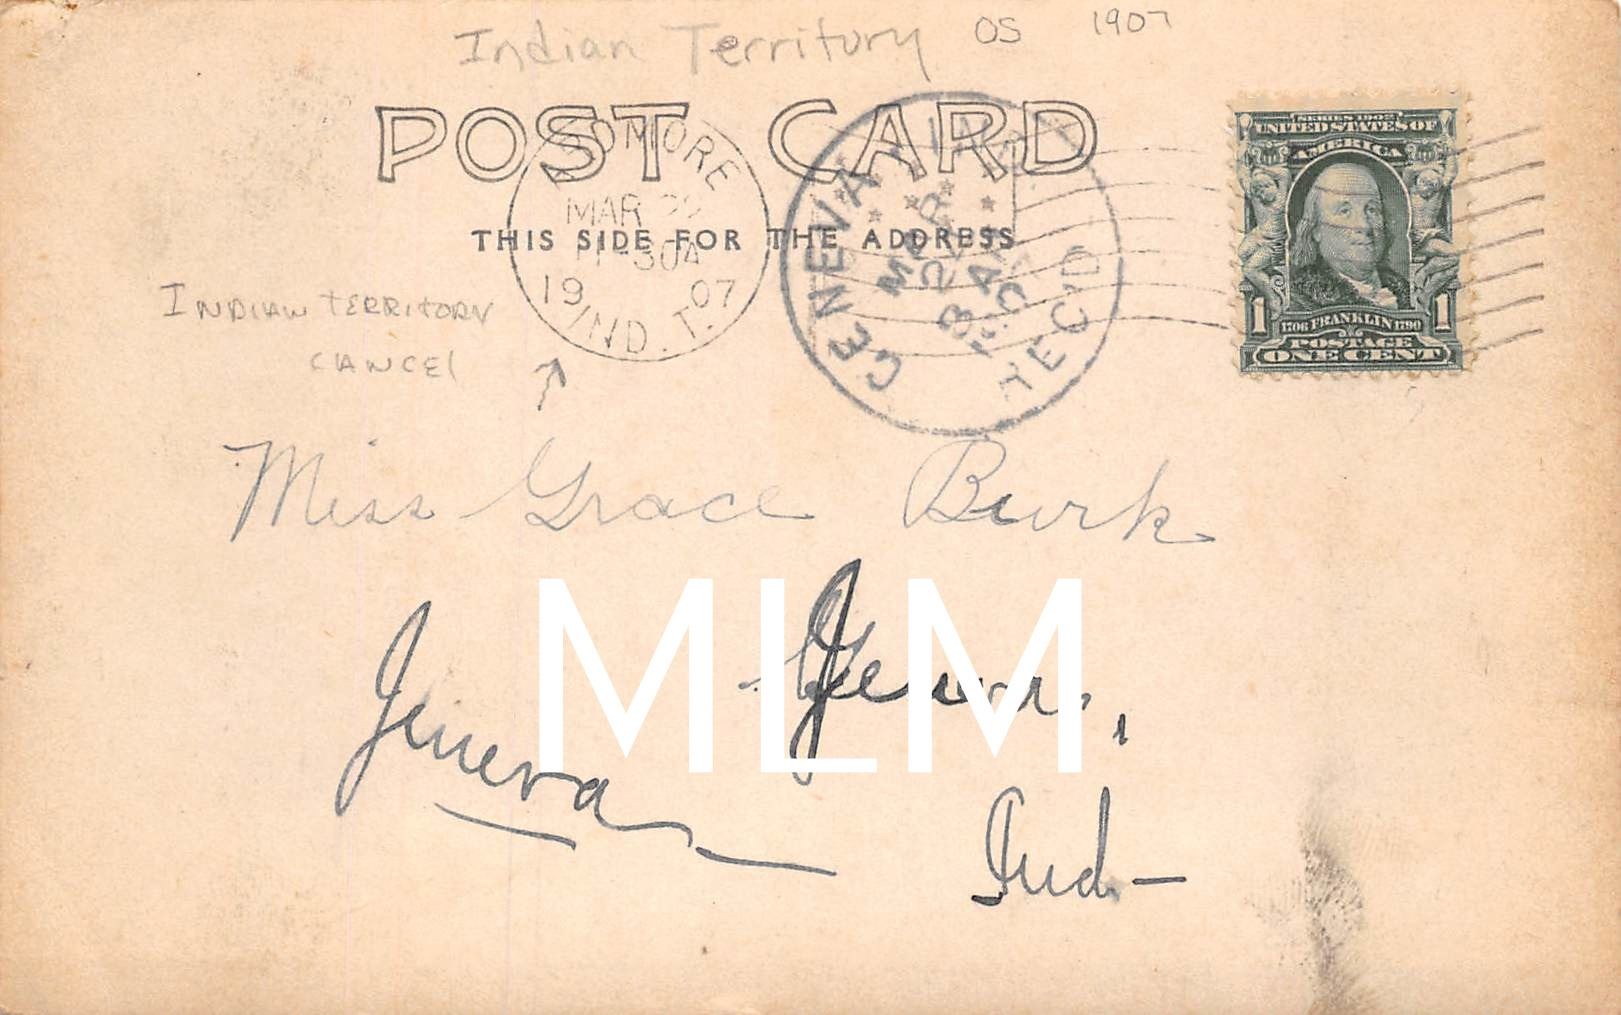 Indian Territory OS 1907
POST CARD
ARDMORE
MAR
THIS SIDE FOR THE ADDRESS
11 30A
19 07
IND. T.
GENEVA IND.
MAR
8 AM
REC'D
SERIES 1902
UNITED STATES OF
AMERICA
1 1706 FRANKLIN 1790 1
POSTAGE
ONE CENT
INDIAN TERRITORY
CANCEL
Miss Grace Burk
Geneva,
Geneva
Ind-
MLM